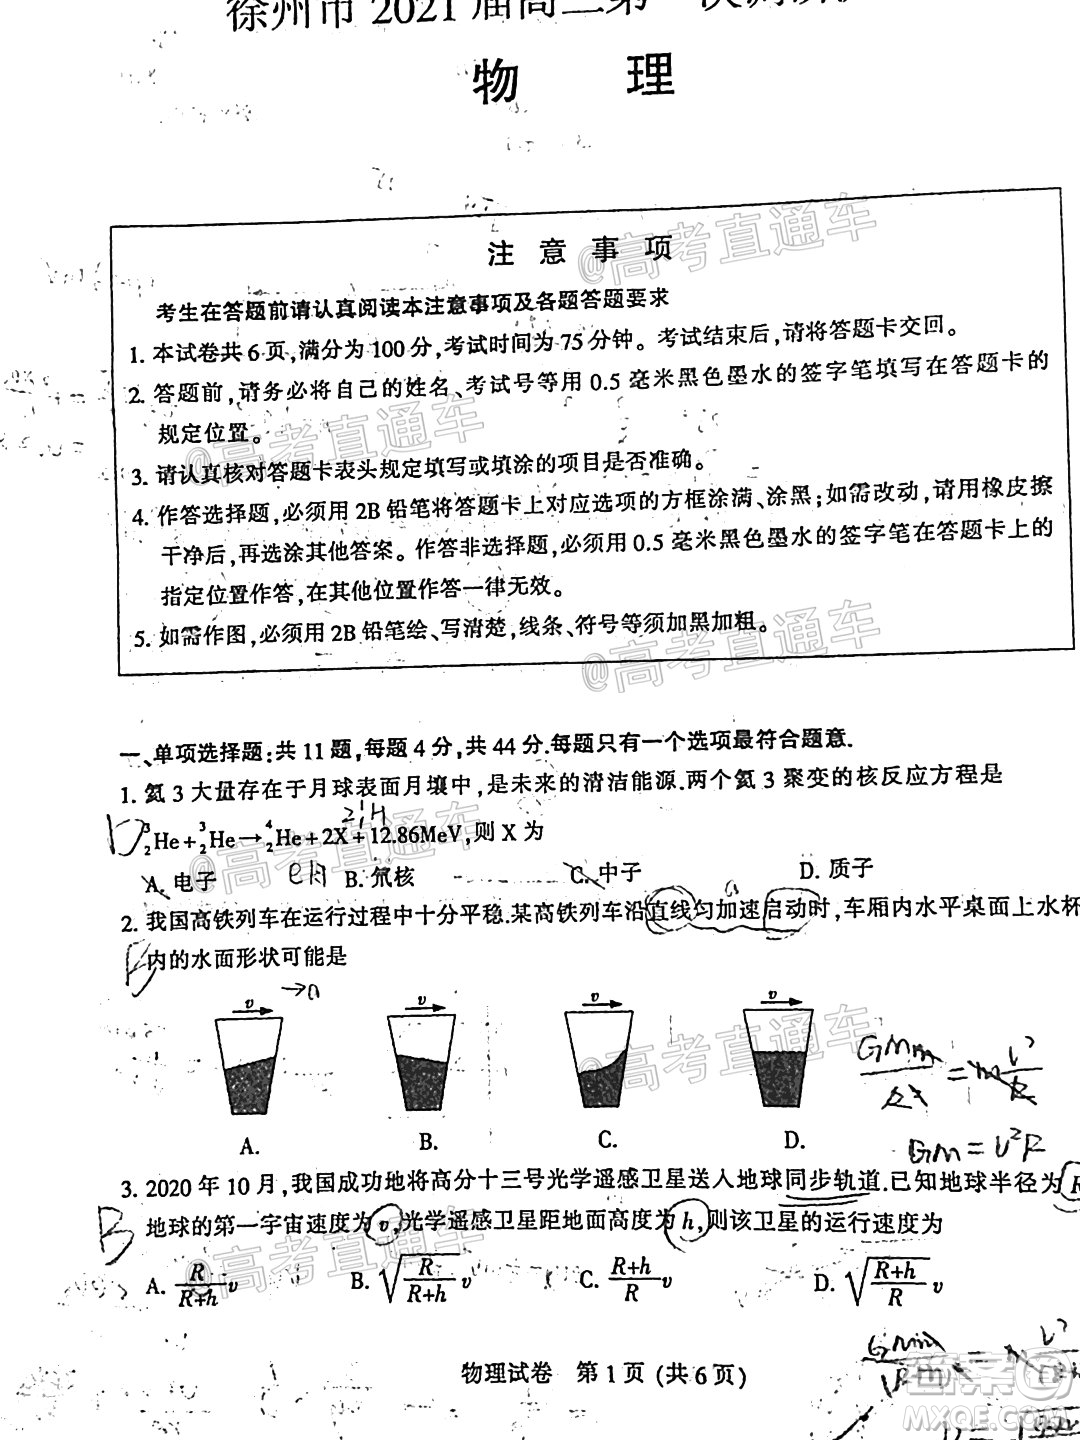 徐州市 2021 届高三第一次调研
物 理
注 意 事 项
考生在答题前请认真阅读本注意事项及各题答题要求
1. 本试卷共 6 页,满分为 100 分,考试时间为 75 分钟。考试结束后,请将答题卡交回。
2. 答题前,请务必将自己的姓名、考试号等用 0.5 毫米黑色墨水的签字笔填写在答题卡的
规定位置。
3. 请认真核对答题卡表头规定填写或填涂的项目是否准确。
4. 作答选择题,必须用 2B 铅笔将答题卡上对应选项的方框涂满、涂黑;如需改动,请用橡皮擦
干净后,再选涂其他答案。作答非选择题,必须用 0.5 毫米黑色墨水的签字笔在答题卡上的
指定位置作答,在其他位置作答一律无效。
5. 如需作图,必须用 2B 铅笔绘、写清楚,线条、符号等须加黑加粗。
@高考直通车
@高考直通车
@高考直通车
一、单项选择题:共 11 题,每题 4 分,共 44 分.每题只有一个选项最符合题意.
1. 氦 3 大量存在于月球表面月壤中,是未来的清洁能源.两个氦 3 聚变的核反应方程是
2¹₁H
D
³₂He+³₂He→⁴₂He+2X+12.86MeV,则 X 为
A. 电子 B. 氘核 C. 中子 D. 质子
@高考直通车
a
2. 我国高铁列车在运行过程中十分平稳.某高铁列车沿直线匀加速启动时,车厢内水平桌面上水杯
内的水面形状可能是
→a
v v v v
A. B. C. D.
@高考直通车
GMm/R² = m v²/R
GM = v²R
3. 2020 年 10 月,我国成功地将高分十三号光学遥感卫星送入地球同步轨道.已知地球半径为 R
B
地球的第一宇宙速度为 v,光学遥感卫星距地面高度为 h,则该卫星的运行速度为
@高考直通车
A. R/(R+h) v B. √(R/(R+h)) v C. (R+h)/R v D. √((R+h)/R) v
物理试卷 第 1 页 (共 6 页)
答案
MXQE.COM